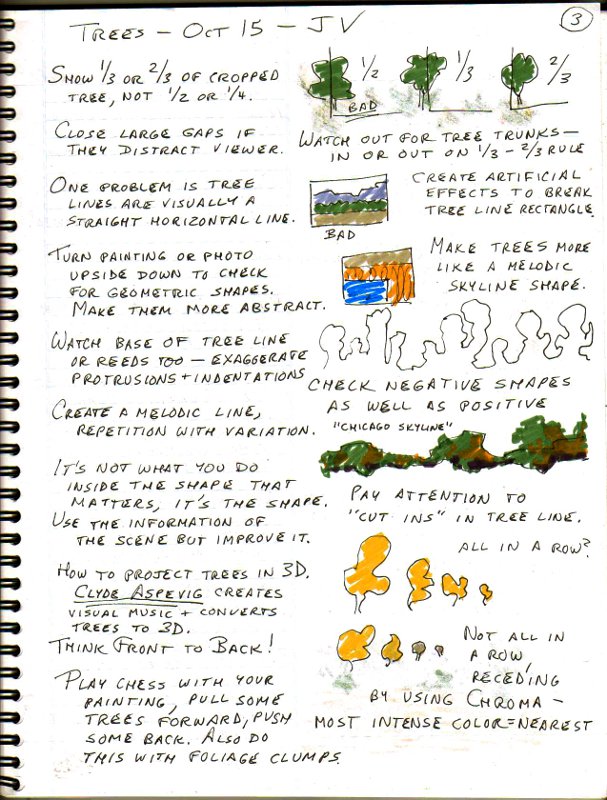 TREES – OCT 15 – JV
3
SHOW 1/3 OR 2/3 OF CROPPED
TREE, NOT 1/2 OR 1/4.
CLOSE LARGE GAPS IF
THEY DISTRACT VIEWER.
ONE PROBLEM IS TREE
LINES ARE VISUALLY A
STRAIGHT HORIZONTAL LINE.
TURN PAINTING OR PHOTO
UPSIDE DOWN TO CHECK
FOR GEOMETRIC SHAPES.
MAKE THEM MORE ABSTRACT.
WATCH BASE OF TREE LINE
OR REEDS TOO – EXAGGERATE
PROTRUSIONS + INDENTATIONS
CREATE A MELODIC LINE,
REPETITION WITH VARIATION.
IT'S NOT WHAT YOU DO
INSIDE THE SHAPE THAT
MATTERS, IT'S THE SHAPE.
USE THE INFORMATION OF
THE SCENE BUT IMPROVE IT.
HOW TO PROJECT TREES IN 3D.
CLYDE ASPEVIG CREATES
VISUAL MUSIC + CONVERTS
TREES TO 3D.
THINK FRONT TO BACK!
PLAY CHESS WITH YOUR
PAINTING, PULL SOME
TREES FORWARD, PUSH
SOME BACK. ALSO DO
THIS WITH FOLIAGE CLUMPS
1/2
1/3
2/3
BAD
WATCH OUT FOR TREE TRUNKS –
IN OR OUT ON 1/3 – 2/3 RULE
CREATE ARTIFICIAL
EFFECTS TO BREAK
TREE LINE RECTANGLE.
BAD
MAKE TREES MORE
LIKE A MELODIC
SKYLINE SHAPE.
CHECK NEGATIVE SHAPES
AS WELL AS POSITIVE
"CHICAGO SKYLINE"
PAY ATTENTION TO
"CUT INS" IN TREE LINE.
ALL IN A ROW?
NOT ALL IN
A ROW,
RECEDING
BY USING CHROMA –
MOST INTENSE COLOR = NEAREST